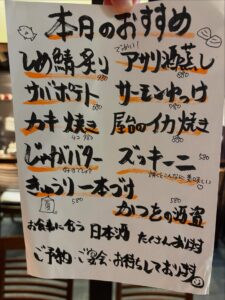 本日のおすすめ
しめ鯖炙り
でかい! アサリ酒蒸し
サバポテト 580
サーモンゆっけ 580
カキ焼き
屋台のイカ焼き
じゃがバター
ズッキーニ 580
きゅうり一本づけ
かつをの酒盗
お食事に合う日本酒たくさんあります
ご予約・ご宴会・お待ちしております